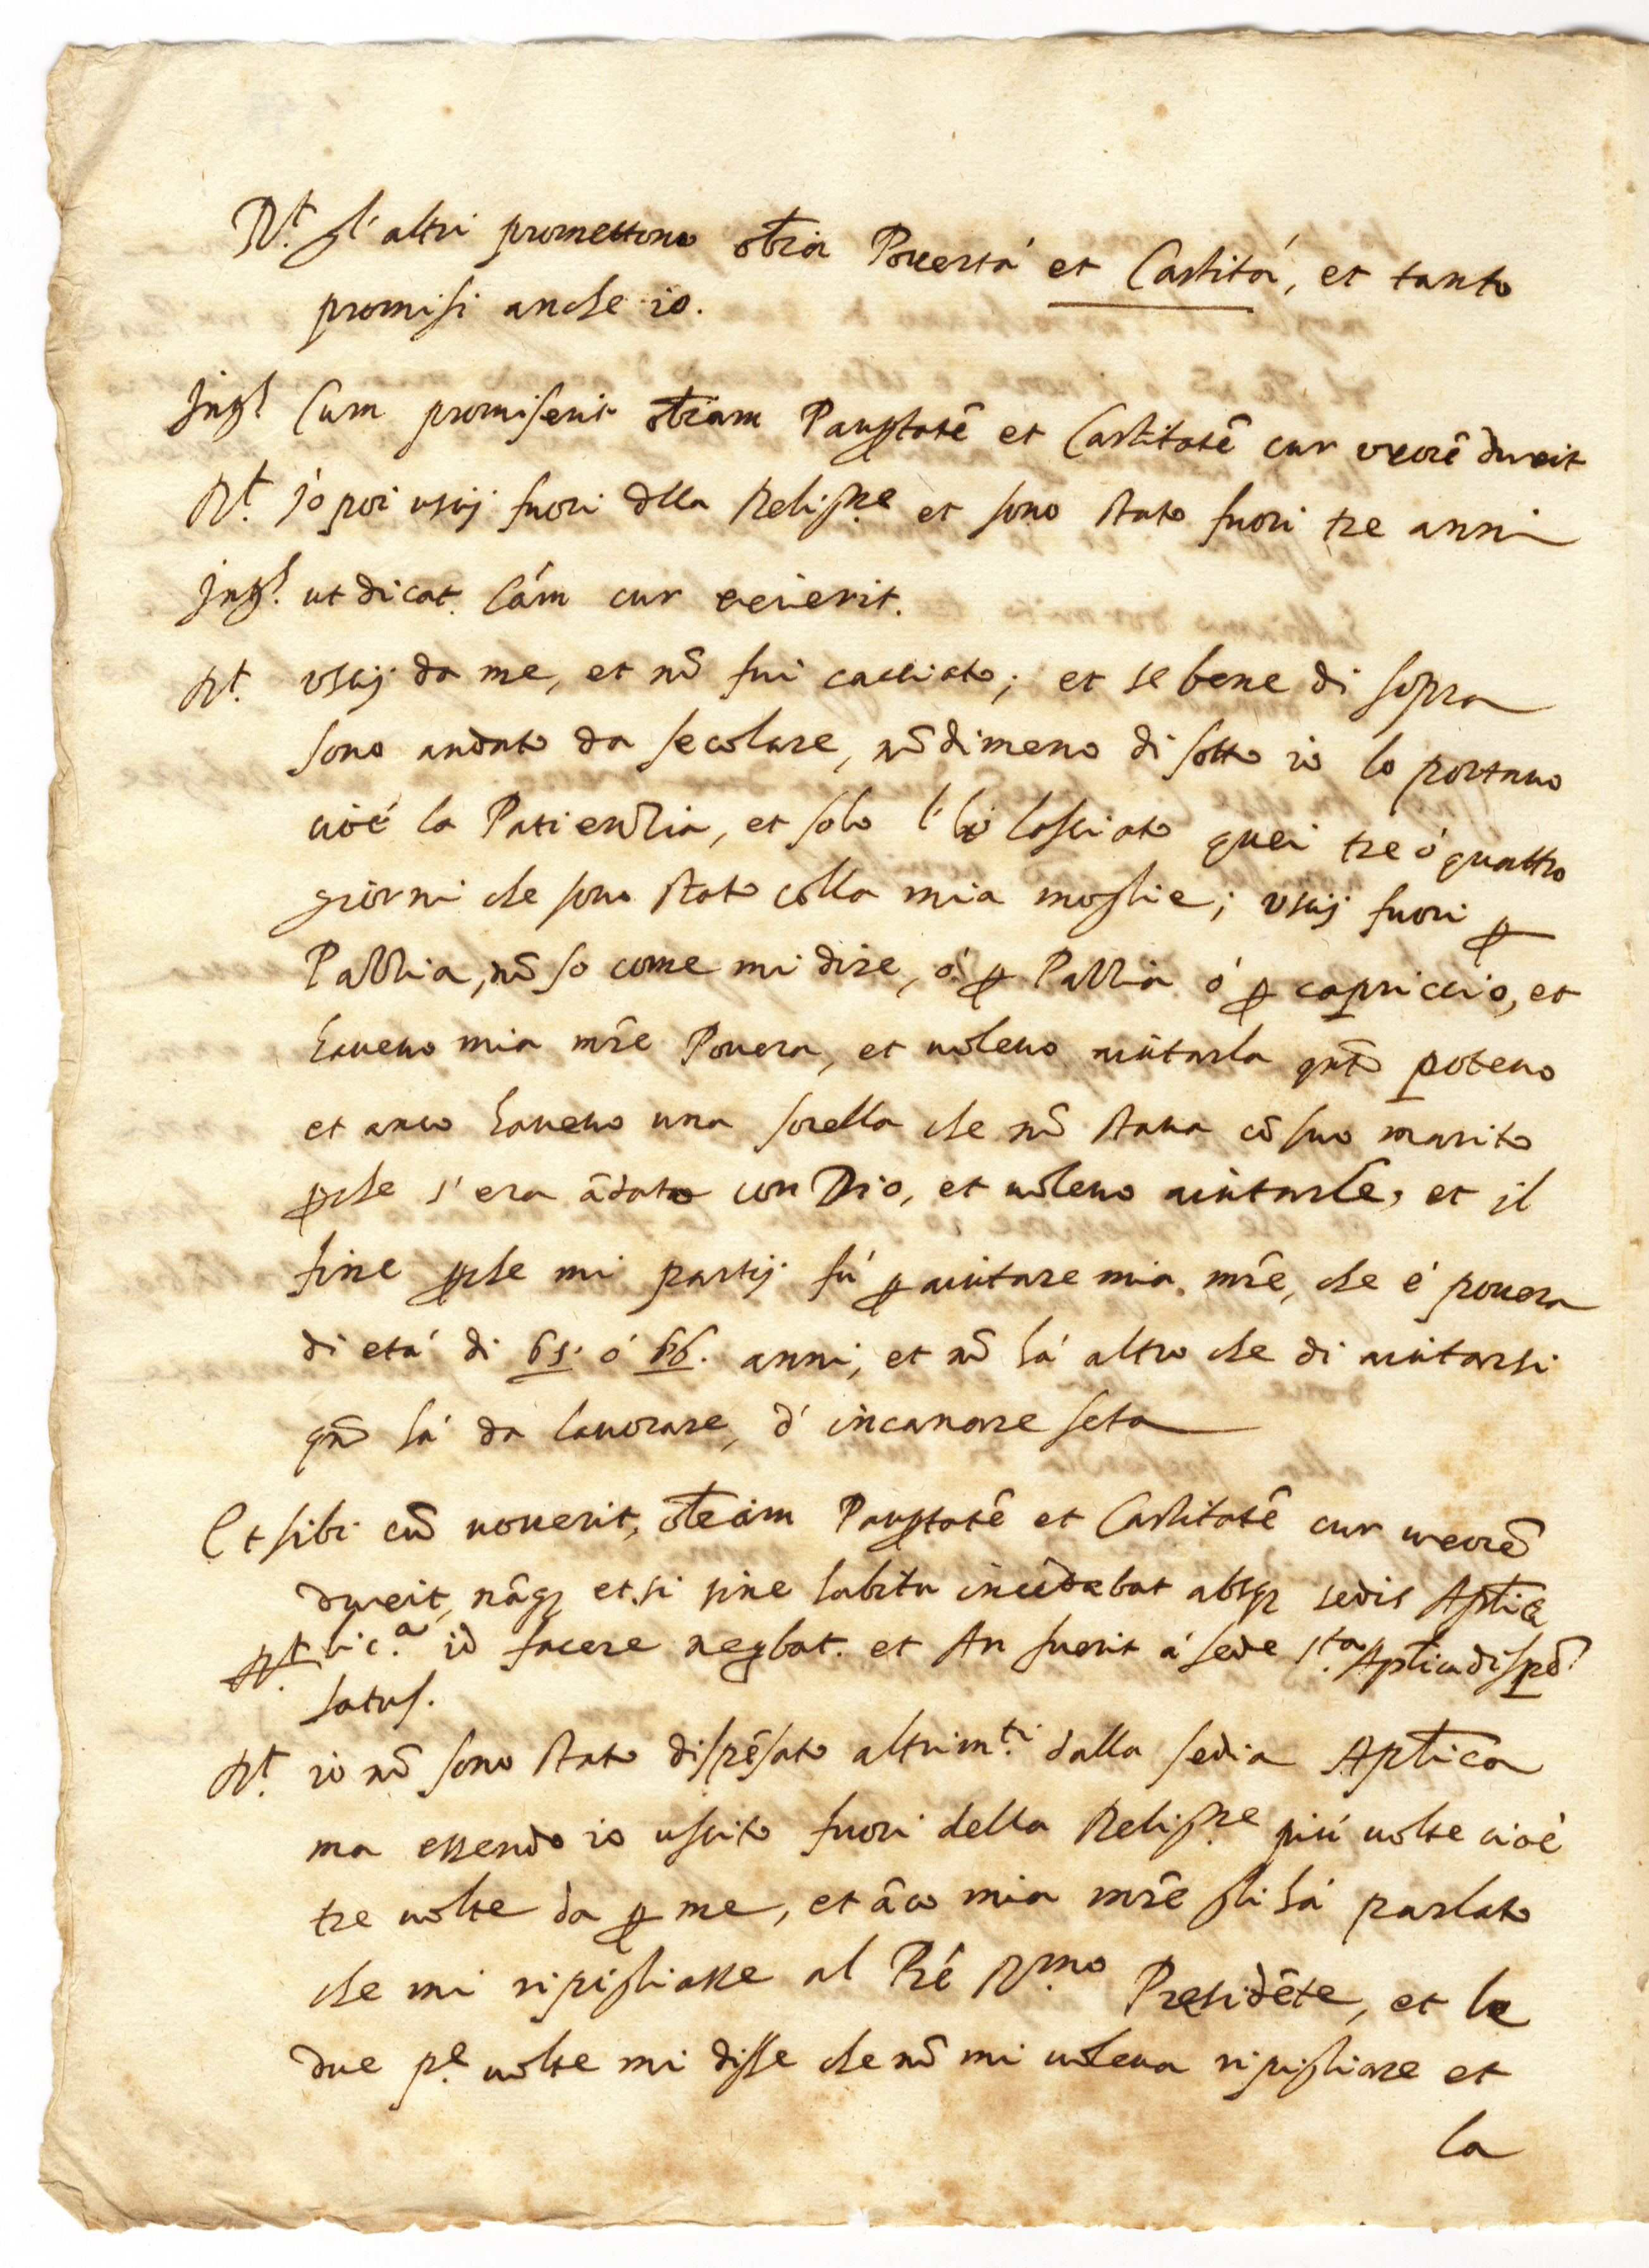 Rt. gl'altri promettono obīa Pouertà et Castità, et tanto
promisi anche io.
Ingt Cum promiserit obīam Pauptatē et Castitatē cur uxorē duxit
Rt. Io poi uscij fuori dlla Religne et sono stato fuori tre anni
Ingt. ut dicat Cám cur exierit.
Rt. uscij da me, et nō fui cacciato; et se bene di sopra
sono andato da secolare, nōdimeno di sotto io lo portauo
cioè la Patienzia, et solo l'hò lasciato quei tre ò quattro
giorni che sono stato colla mia moglie; uscij fuori p
Pazzia, nō so come mi dire, ò p Pazzia ò p capriccio, et
haueuo mia mr̄e Pouera, et uoleuo aiutarla qnt̄o poteuo
et anco haueuo una sorella che nō staua cō suo marito
pche s'era ādato con Dio, et uoleuo aiutarle, et il
fine pche mi partij fù p aiutare mia mr̄e, che è pouera
di età di 65. ò 66. anni, et nō hà altro che di aiutarsi
qn̄ hà da lauorare, d'incanare seta
Et sibi cū nouerit, obīam Pauptatē et Castitatē cur uxorē
duxit, nāq etsi sine habitu incedebat absq sedis Aplicæ
lic.a id facere neqbat. et An fuerit à sede s.ta Aplica dispē
satus.
Rt. io nō sono stato dispēsato altrim.ti dalla sedia Aplica
ma essendo io uscito fuori della Religne più uolte cioè
tre uolte da p me, et āco mia mr̄e gli hà parlato
che mi ripigliasse al Prē R.mo Presidēte, et le
due p.e uolte mi disse che nō mi uoleua ripigliare et
la